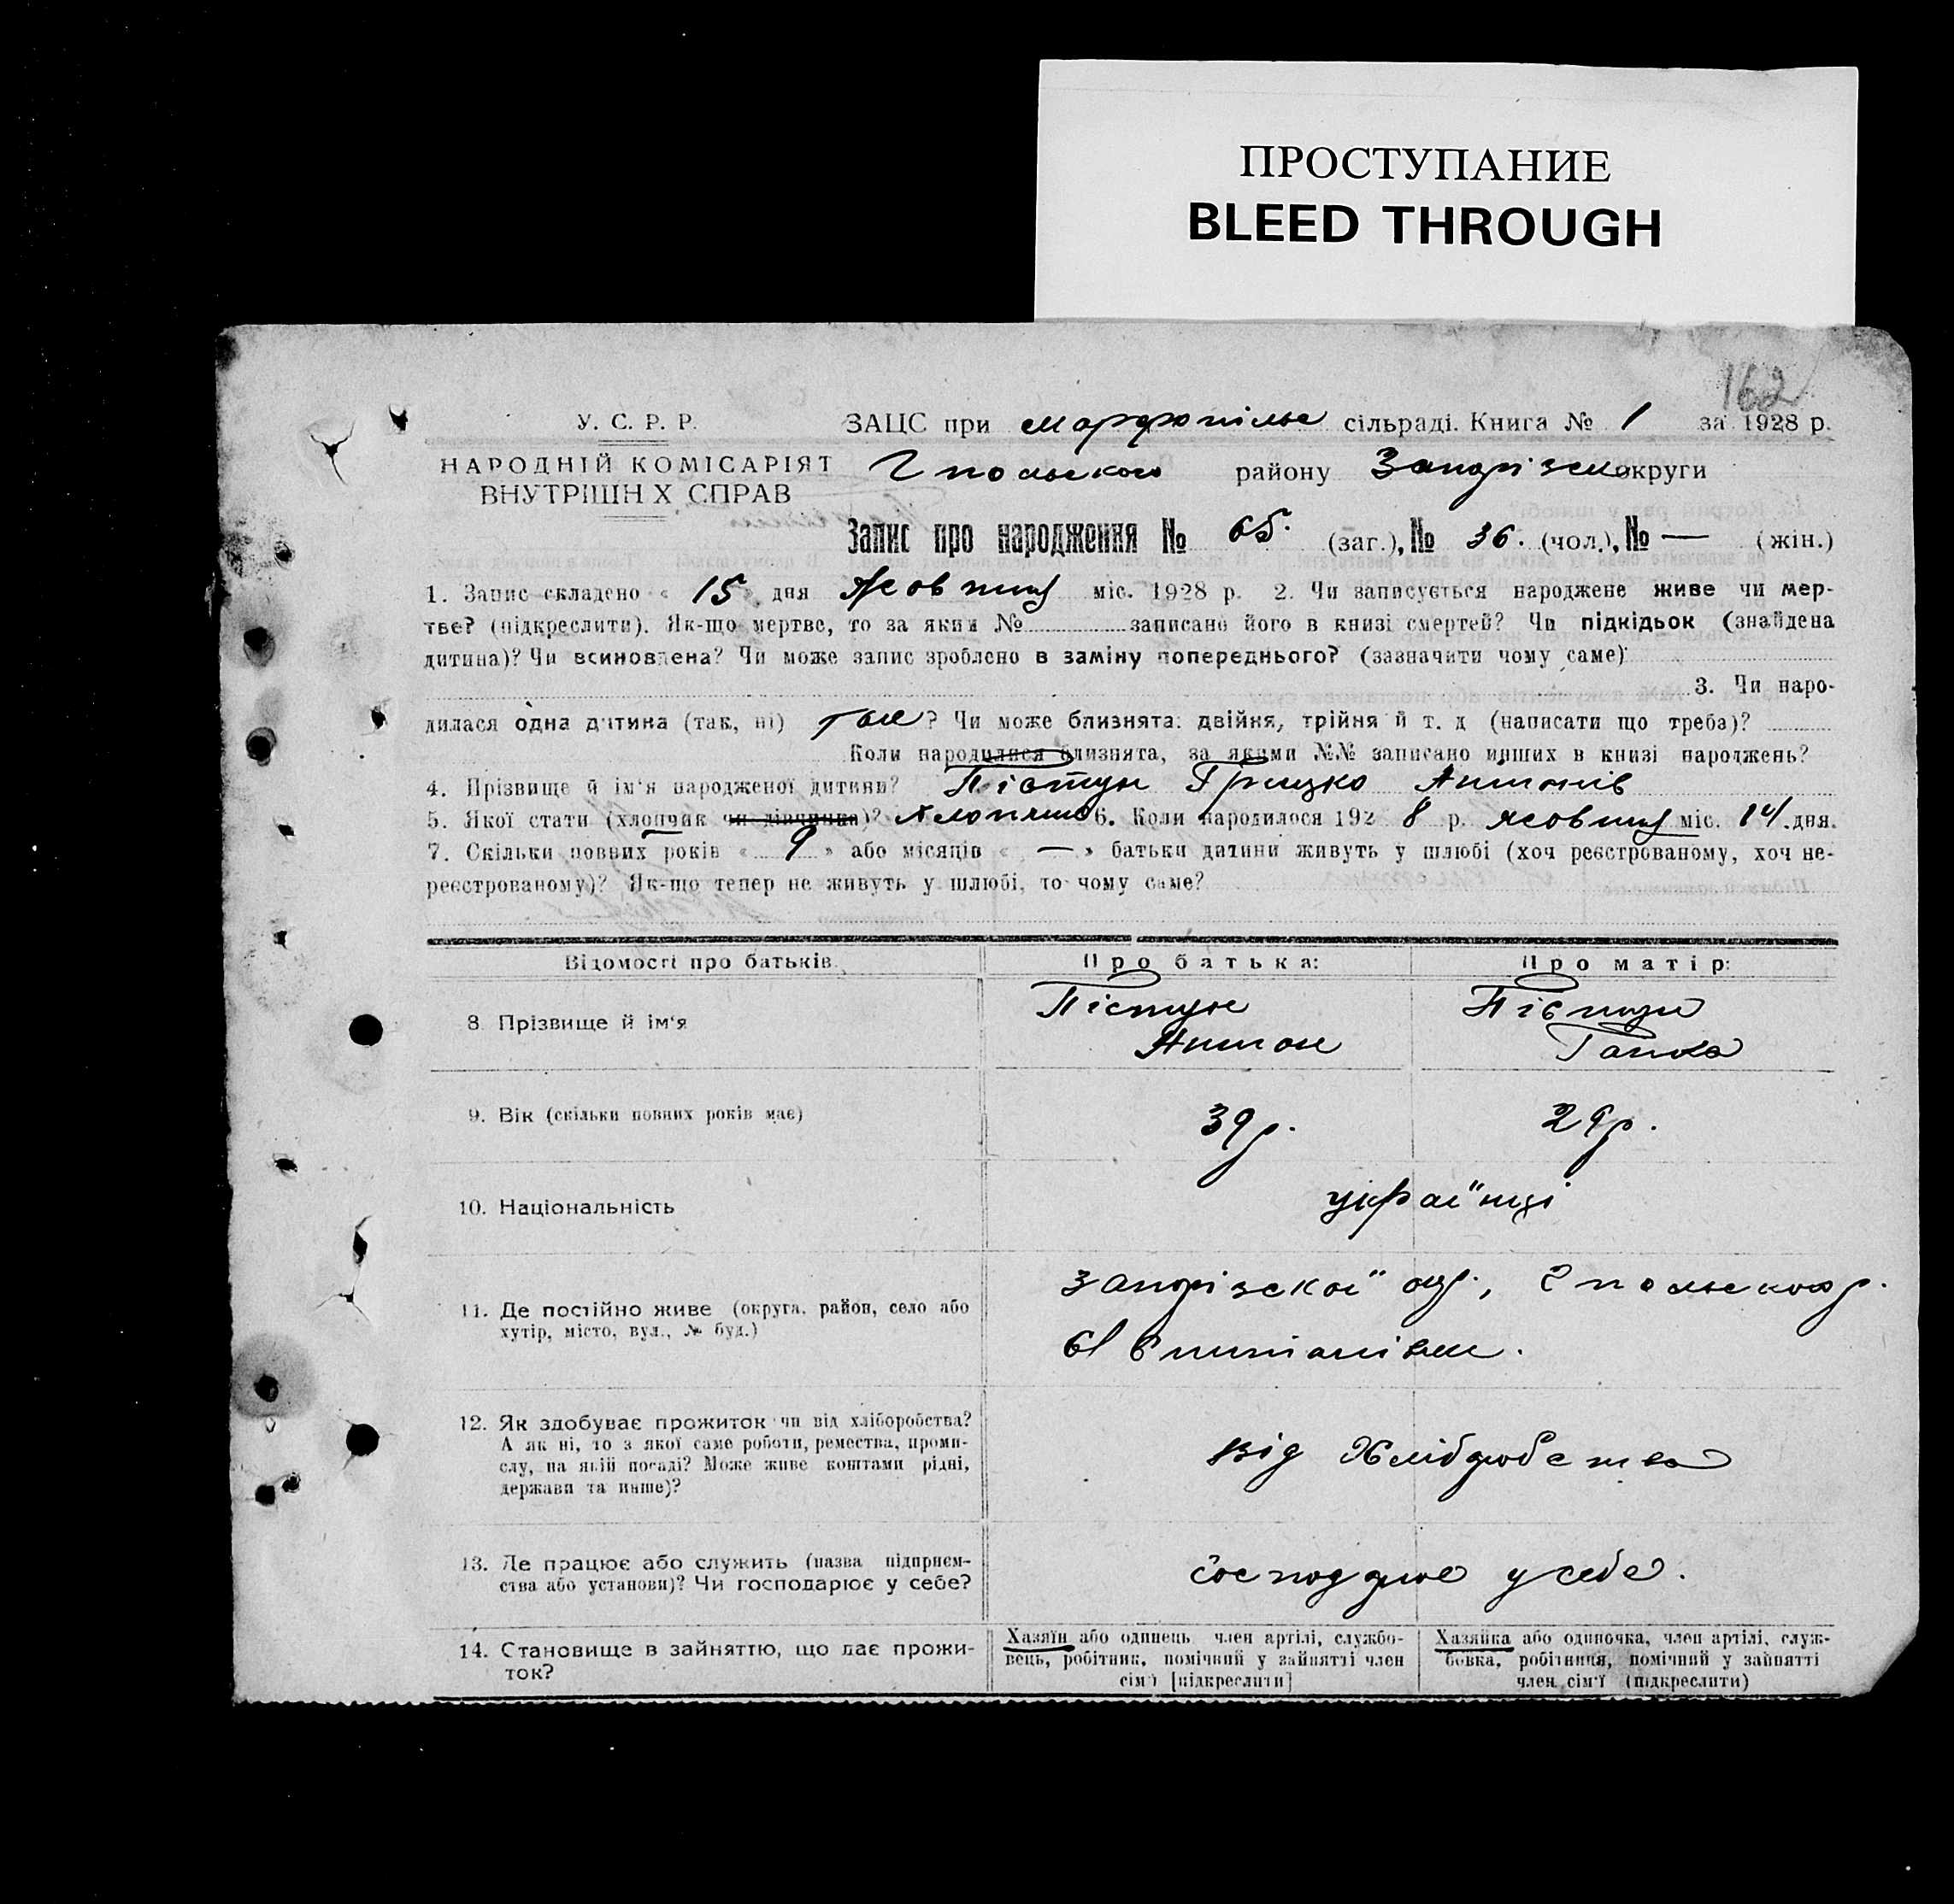 ПРОСТУПАНИЕ
BLEED THROUGH
162
У. С. Р. Р.
ЗАЦС при Марфопільс сільраді. Книга № 1 за 1928 р.
НАРОДНІЙ КОМІСАРІЯТ
ВНУТРІШН Х СПРАВ
Гпольського району Запорізьк округи
Запис про народження № 65. (заг.), № 36. (чол.), № — (жін.)
1. Запис складено « 15 дня Жовтня міс. 1928 р. 2. Чи записується народжене живе чи мер-
тве? (підкреслити). Як-що мертве, то за яким № записано його в книзі смертей? Чи підкідьок (знайдена
дитина)? Чи всиновлена? Чи може запис зроблено в заміну попереднього? (зазначити чому саме)
3. Чи наро-
дилася одна дитина (так, ні) так? Чи може близнята: двійня, трійня й т. д (написати що треба)?
Коли народилися близнята, за якими №№ записано инших в книзі народжень?
4. Прізвище й ім'я народженої дитини? Пістун Грицко Антонів
5. Якої стати (хлопчик чи дівчинка)? Хлопчик 6. Коли народилося 192 8 р. жовтня міс. 14. дня.
7. Скільки повних років « 9 » або місяців « — » батьки дитини живуть у шлюбі (хоч реєстрованому, хоч не-
реєстрованому)? Як-що тепер не живуть у шлюбі, то чому саме?
Відомості про батьків Про батька: Про матір:
8 Прізвище й ім'я
Пістун Пістун
Антон Ганна
9. Вік (скільки повних років має) 39р. 29р.
10. Національність українці
11. Де постійно живе (округа, район, село або
хутір, місто, вул., № буд.)
Запорізської окр., Гпольськог р.
12. Як здобуває прожиток чи від хліборобства?
А як ні, то з якої саме роботи, ремества, проми-
слу, на якій посаді? Може живе коштами рідні,
держави та инше)?
від Хліборобства
13. Де працює або служить (назва підприєм-
ства або установи)? Чи господарює у себе?
Господарює у себе.
14. Становище в зайняттю, що дає прожи-
ток?
Хазяїн або одинець член артілі, службо-
вець, робітник, помічний у зайнятті член
сім'ї [підкреслити]
Хазяйка або одиночка, член артілі, служ-
бовка, робітниця, помічний у зайнятті
член сім'ї (підкреслити)